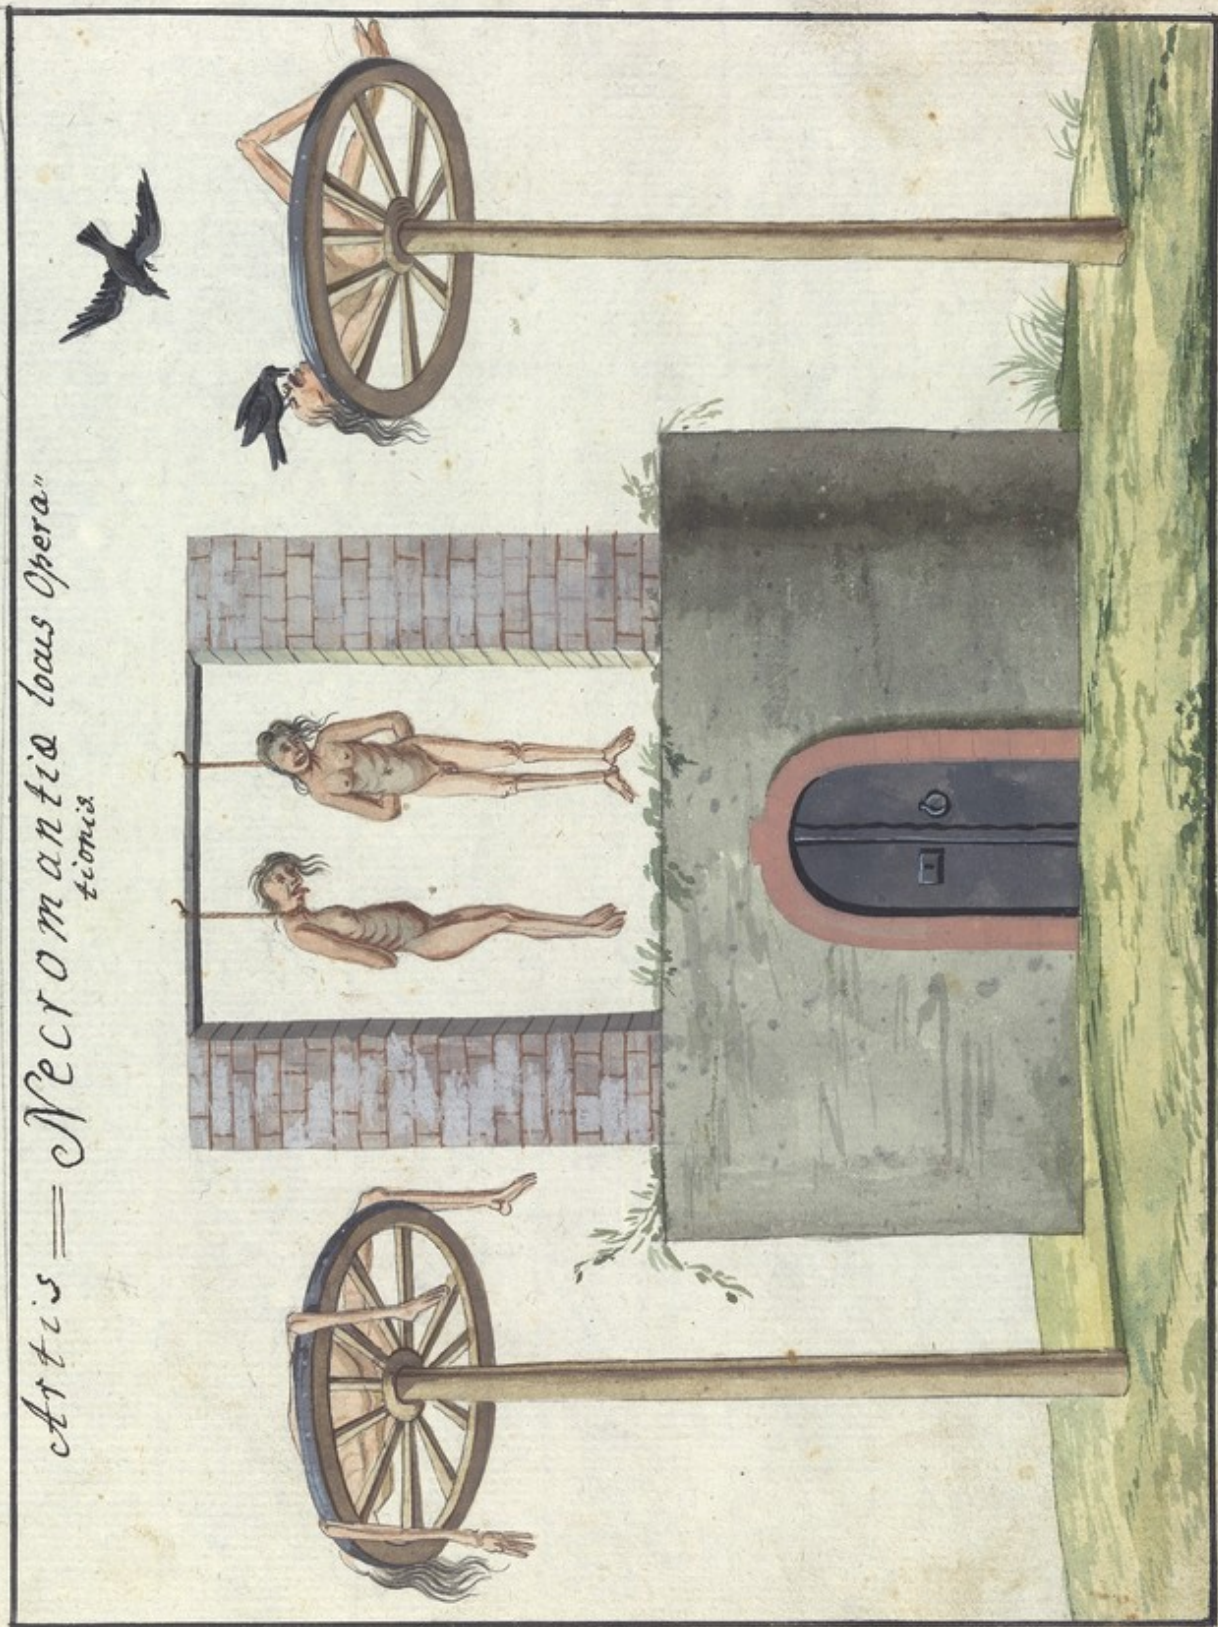 Artis = Necromantiæ locus Opera„
tionis.